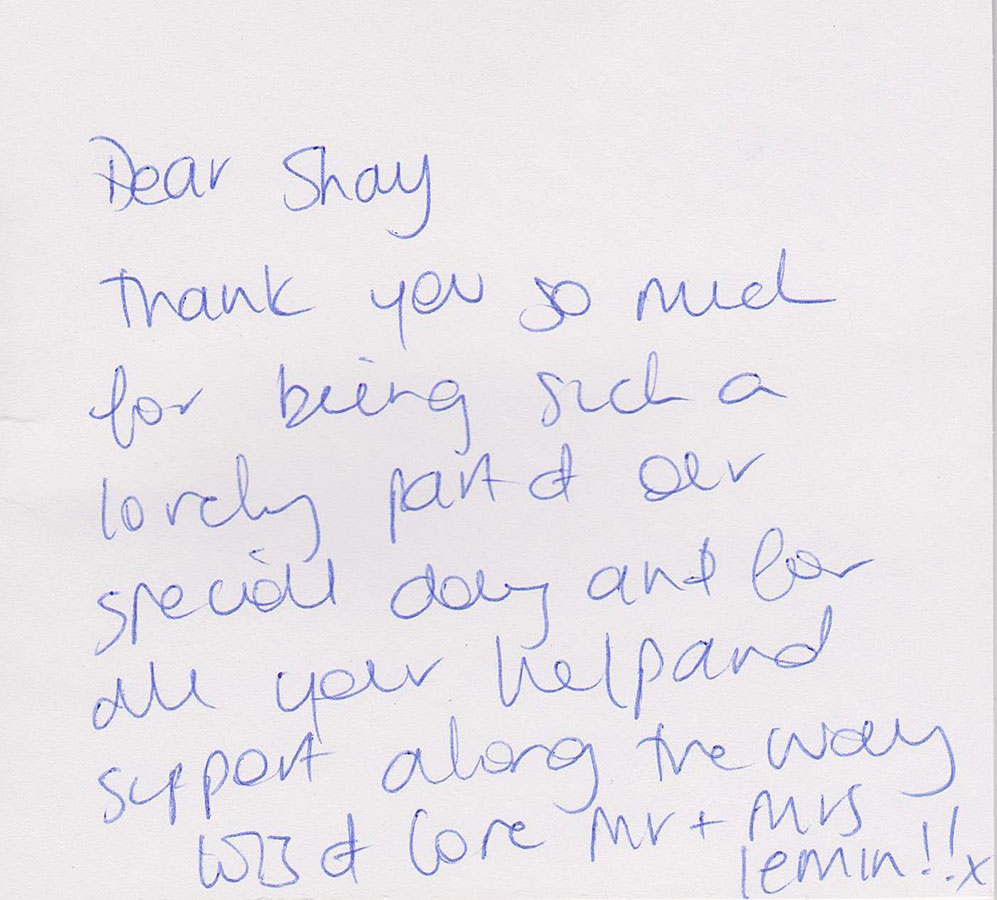 Dear Shay
Thank you so much
for being such a
lovely part of our
special day and for
all your help and
support along the way
Lots of Love Mr + Mrs
lemin!!x